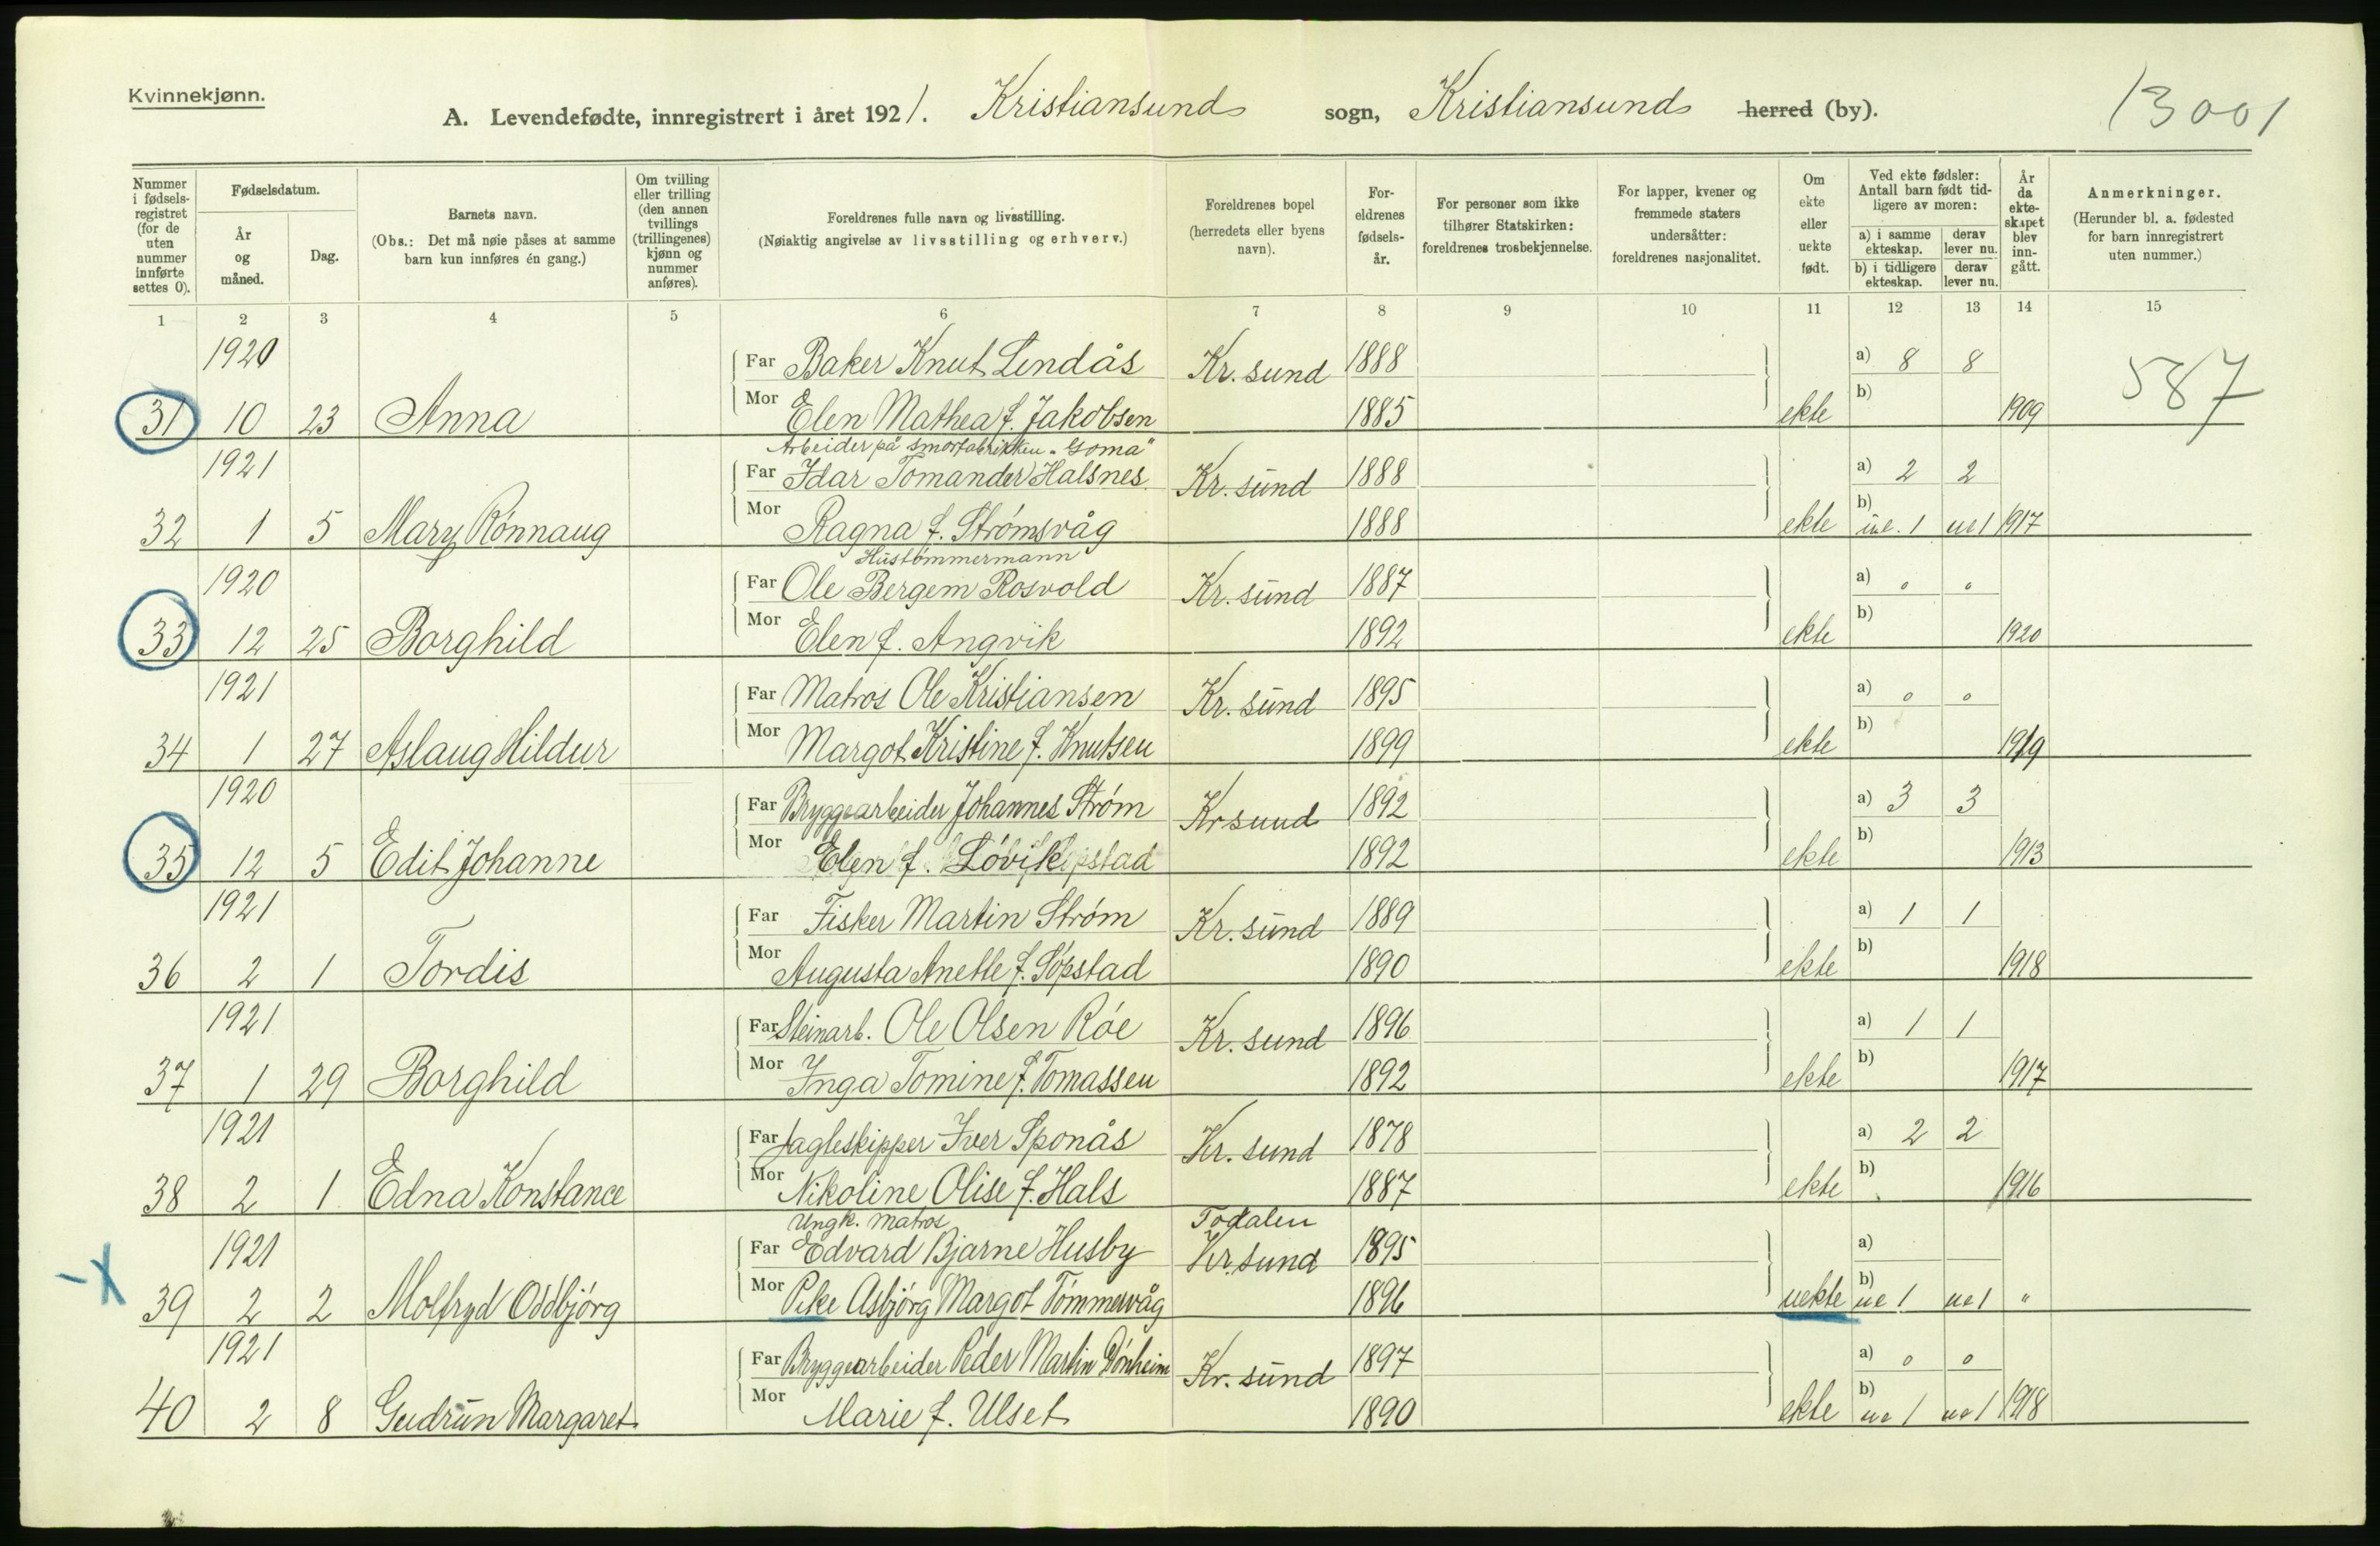 Kvinnekjønn.
A. Levendefødte, innregistrert i året 1921. Kristiansund sogn, Kristiansund herred (by). 13001
Nummer i fødselsregistret (for de uten nummer innførte settes 0).
Fødselsdatum.
År og måned.
Dag.
Barnets navn.
(Obs.: Det må nøie påses at samme barn kun innføres én gang.)
Om tvilling eller trilling (den annen tvillings (trillingenes) kjønn og nummer anføres).
Foreldrenes fulle navn og livsstilling.
(Nøiaktig angivelse av livsstilling og erhverv.)
Foreldrenes bopel (herredets eller byens navn).
Foreldrenes fødselsår.
For personer som ikke tilhører Statskirken: foreldrenes trosbekjennelse.
For lapper, kvener og fremmede staters undersåtter: foreldrenes nasjonalitet.
Om ekte eller uekte født.
Ved ekte fødsler: Antall barn født tidligere av moren:
a) i samme ekteskap. derav lever nu.
b) i tidligere ekteskap. derav lever nu.
År da ekteskapet blev inngått.
Anmerkninger.
(Herunder bl. a. fødested for barn innregistrert uten nummer.)
1 2 3 4 5 6 7 8 9 10 11 12 13 14 15
1920 Far Baker Knut Lendås Kr. sund 1888 a) 8 8 587
31 10 23 Anna Mor Elen Mathea f. Jakobsen 1885 ekte b) 1909
Arbeider på smørfabrikken "Goma"
1921 Far Idar Tomander Halsnes Kr. sund 1888 a) 2 2
32 1 5 Mary Rønnaug Mor Ragna f. Strømsvåg 1888 ekte b) ue. 1 ue 1 1917
Hustømmermann
1920 Far Ole Bergem Rosvold Kr. sund 1887 a) 0 0
33 12 25 Borghild Mor Elen f. Angvik 1892 ekte b) 1920
1921 Far Matros Ole Kristiansen Kr. sund 1895 a) 0 0
34 1 27 Aslaug Hildur Mor Margot Kristine f. Knutsen 1899 ekte b) 1919
1920 Far Bryggearbeider Johannes Strøm Kr sund 1892 a) 3 3
35 12 5 Edit Johanne Mor Elen f. Løvik 1892 ekte b) 1913
1921 Far Fisker Martin Strøm Kr. sund 1889 a) 1 1
36 2 1 Tordis Mor Augusta Anette f. Søpstad 1890 ekte b) 1918
1921 Far Steinarb. Ole Olsen Røe Kr. sund 1896 a) 1 1
37 1 29 Borghild Mor Inga Tomine f. Tomassen 1892 ekte b) 1917
1921 Far Jagteskipper Iver Sponås Kr. sund 1878 a) 2 2
38 2 1 Edna Konstance Mor Nikoline Olise f. Hals 1887 ekte b) 1916
Ungk. matros Todalen
1921 Far Edvard Bjarne Husby Kr. sund 1895 a)
39 2 2 Molfryd Oddbjørg Mor Pike Asbjørg Margot Tømmervåg 1896 uekte b) ue 1 ue 1 "
1921 Far Bryggearbeider Peder Martin Dønheim Kr. sund 1897 a) 0 0
40 2 8 Gudrun Margaret Mor Marie f. Ulset 1890 ekte b) ue 1 ue 1 1918